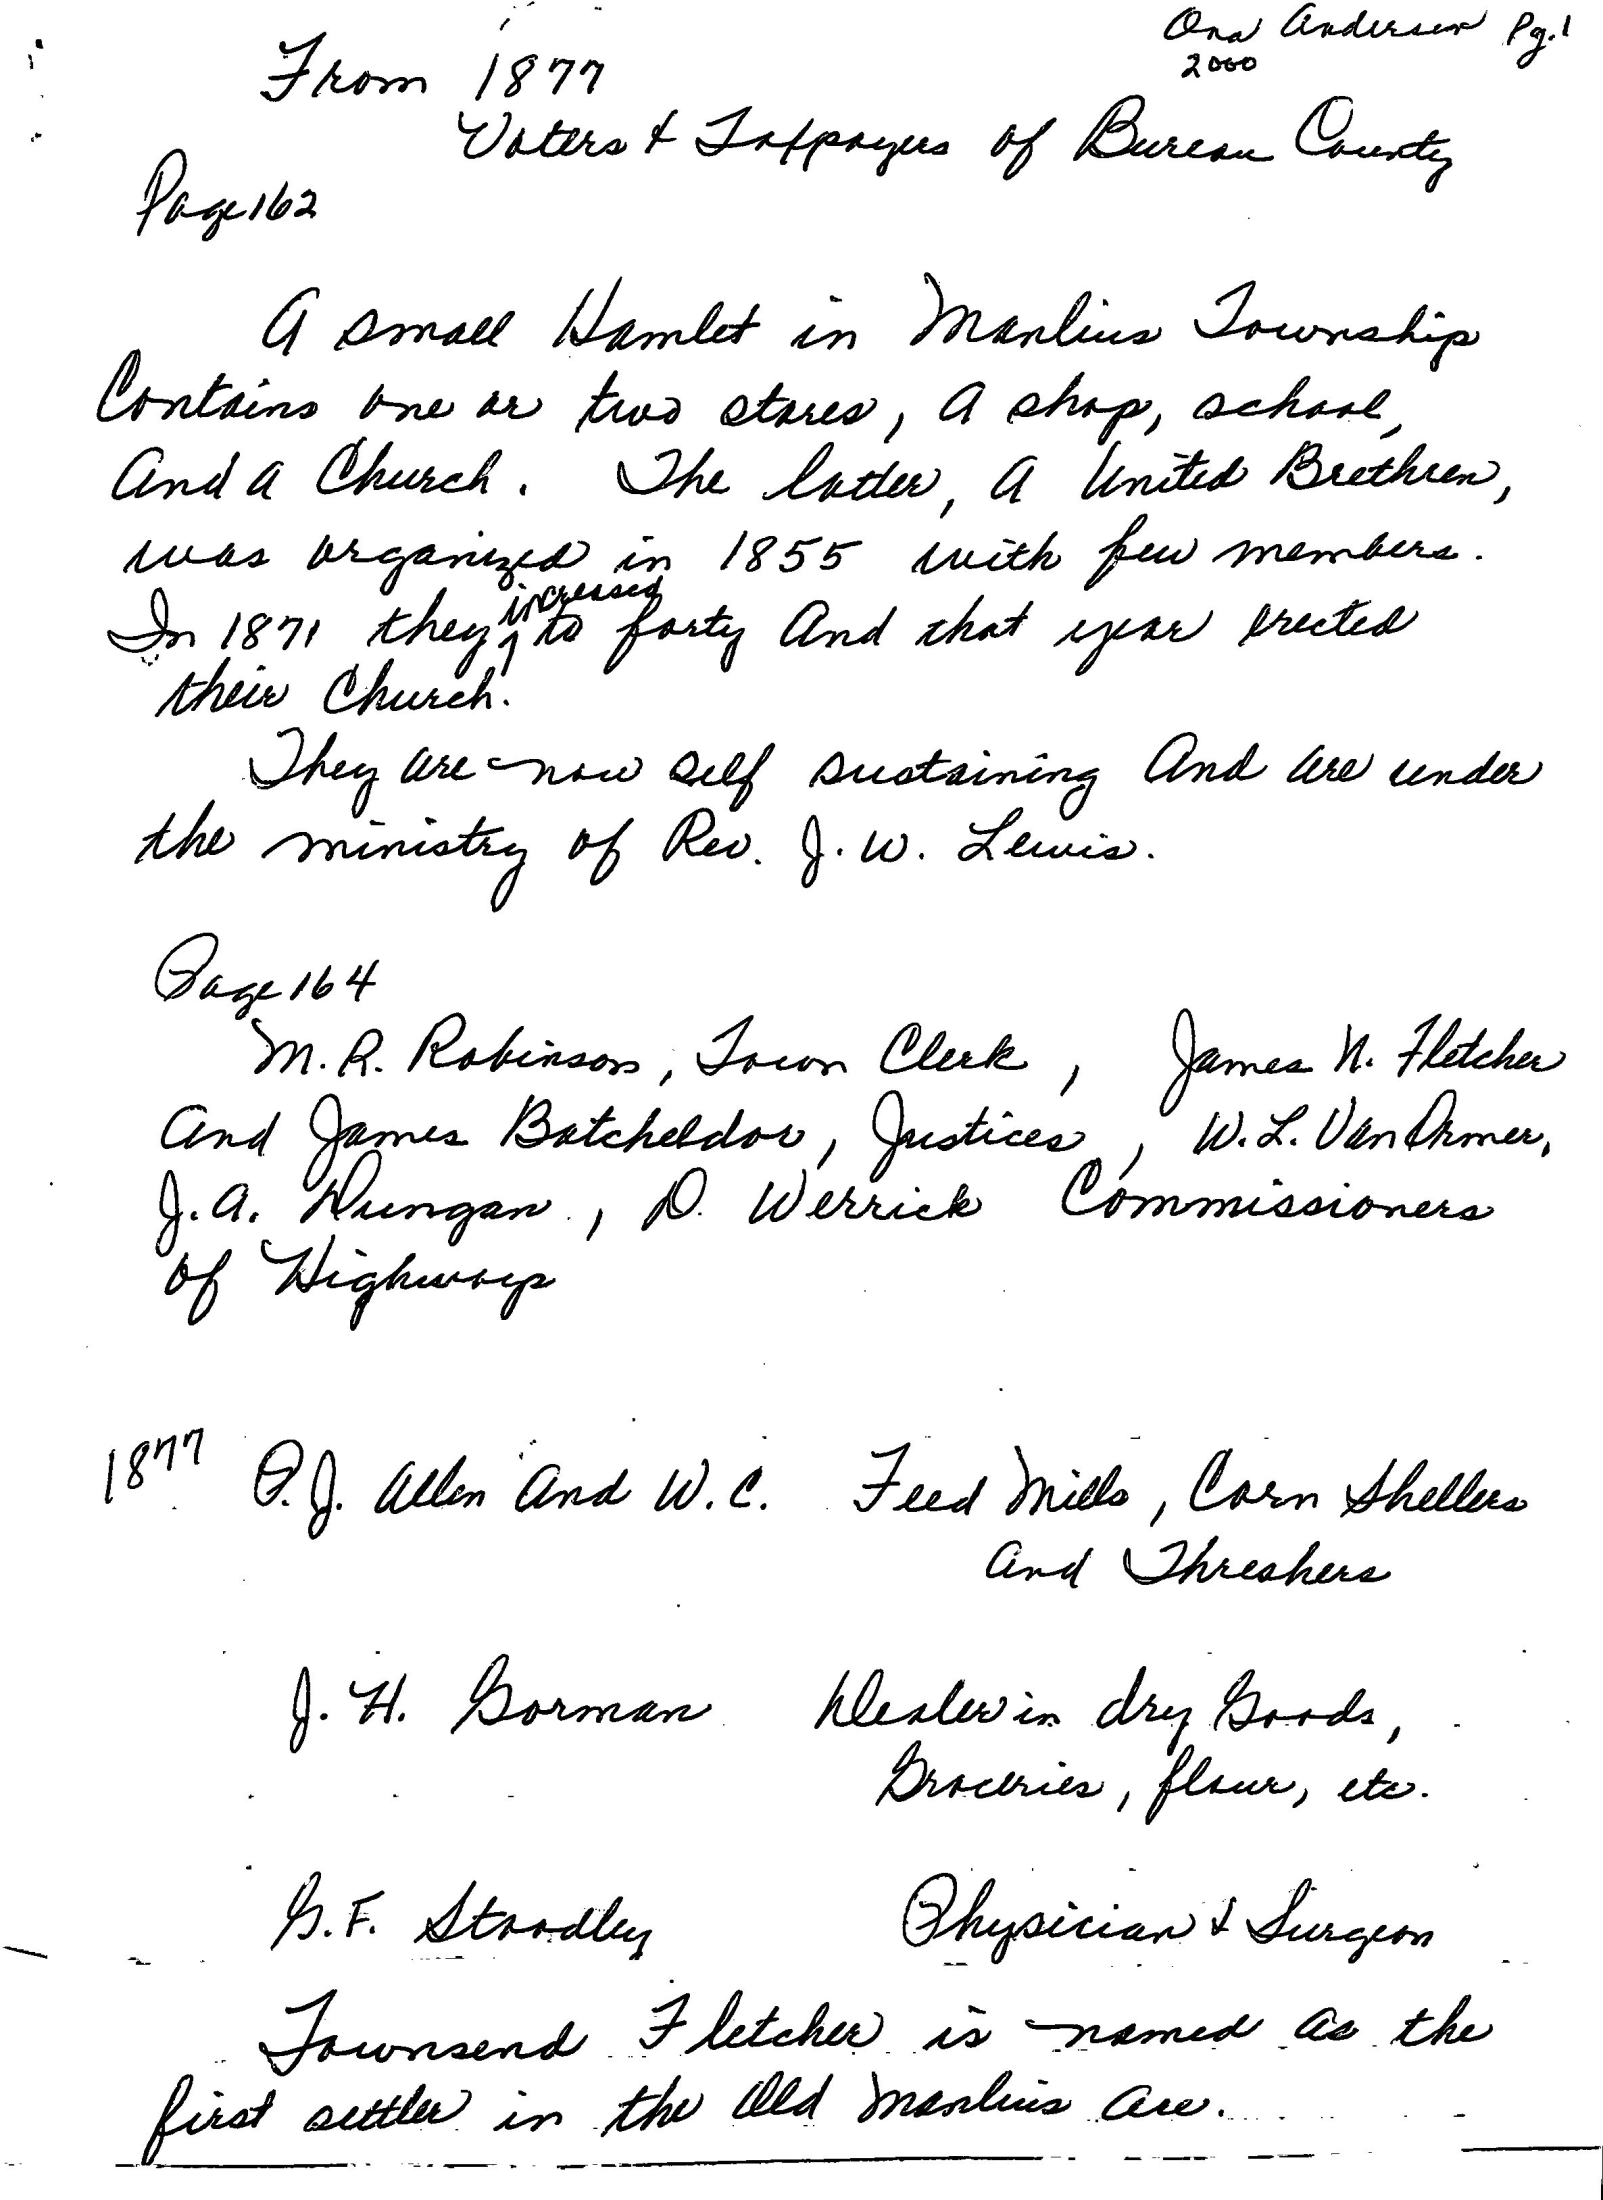 Ona Anderson Pg. 1
2000
From 1877
Voters & Taxpayers of Bureau County
Page 162
A small Hamlet in Manlius Township
Contains one or two stores, A shop, school,
And a Church. The latter, A United Brethren,
was organized in 1855 with few members.
In 1871 they increased to forty And that year erected
their Church.
They are now self sustaining And are under
the ministry of Rev. J. W. Lewis.
Page 164
M. R. Robinson, Town Clerk, James N. Fletcher
And James Batcheldor, Justices, W. L. Van Ormer,
J. A. Dungan, D. Werrick Commissioners
of Highways
1877 P. J. Allen And W. C. Feed Mills, Corn Shellers
And Threshers
J. H. Gorman Dealer in dry Goods,
Groceries, flour, etc.
G. F. Stoodley Physician & Surgeon
Townsend Fletcher is named as the
first settler in the Old Manlius are.